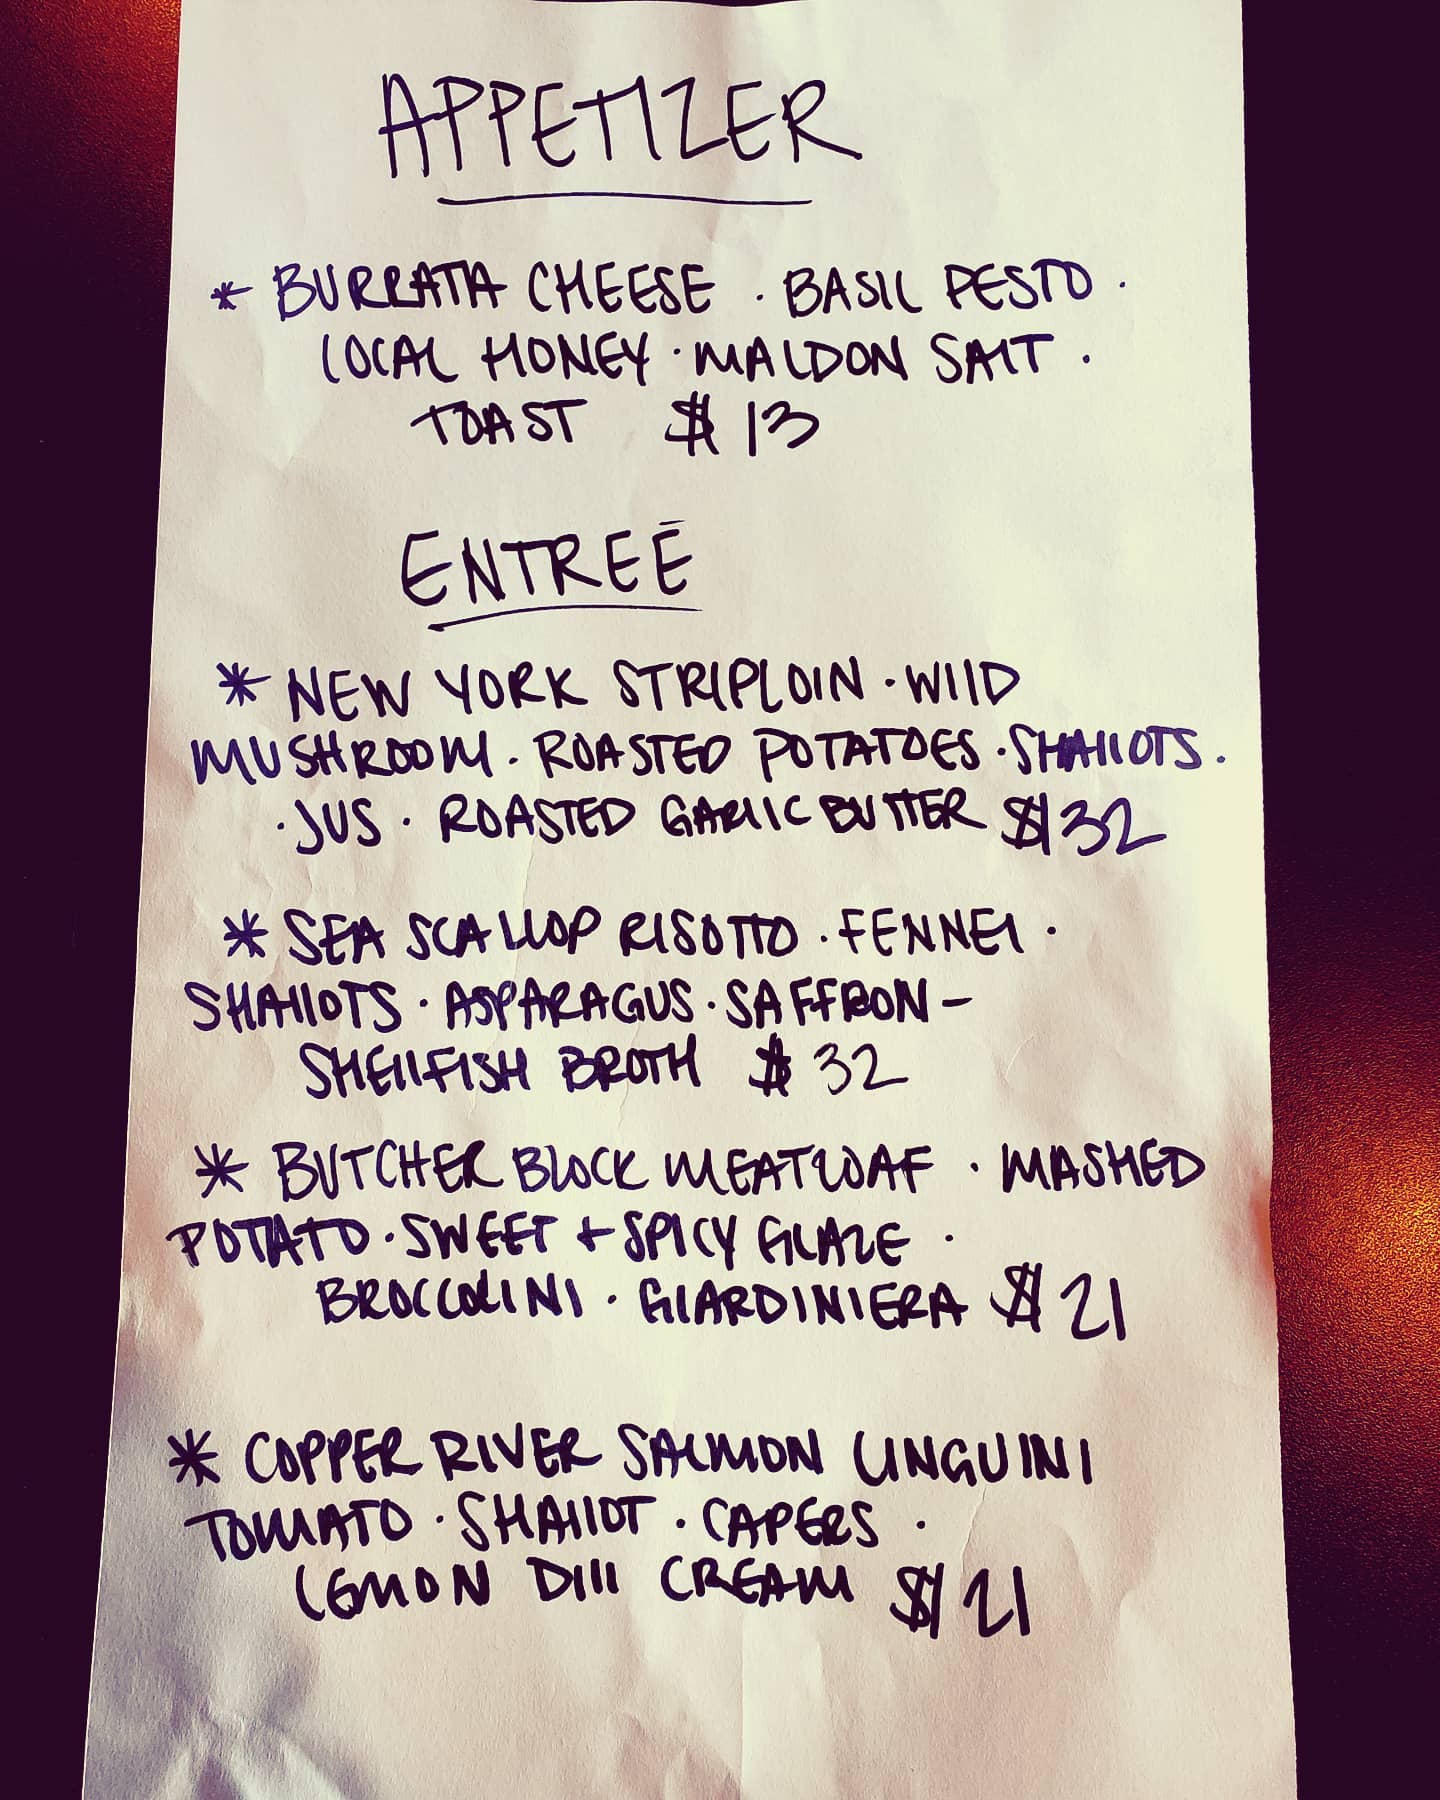 APPETIZER
* BURRATA CHEESE · BASIL PESTO ·
LOCAL HONEY · MALDON SALT ·
TOAST $13
ENTREĒ
* NEW YORK STRIPLOIN · WILD
MUSHROOM · ROASTED POTATOES · SHALLOTS ·
· JUS · ROASTED GARLIC BUTTER $32
* SEA SCALLOP RISOTTO · FENNEL ·
SHALLOTS · ASPARAGUS · SAFFRON -
SHELLFISH BROTH $32
* BUTCHER BLOCK MEATLOAF · MASHED
POTATO · SWEET + SPICY GLAZE ·
BROCCOLINI · GIARDINIERA $21
* COPPER RIVER SALMON LINGUINI
TOMATO · SHALLOT · CAPERS ·
LEMON DILL CREAM $21